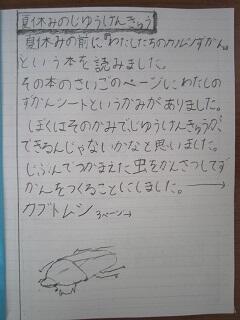 夏休みのじゆうけんきゅう
夏休みの前に『わたしたちのカブトムシずかん』
という本を読みました。
その本のさいごのページにわたしの
ずかんシートというかみがありました。
ぼくはそのかみでじゆうけんきゅうが、
できるんじゃないかなと思いました。
じぶんでつかまえた虫をかんさつしてず
かんをつくることにしました。→
カブトムシ 3ページ→